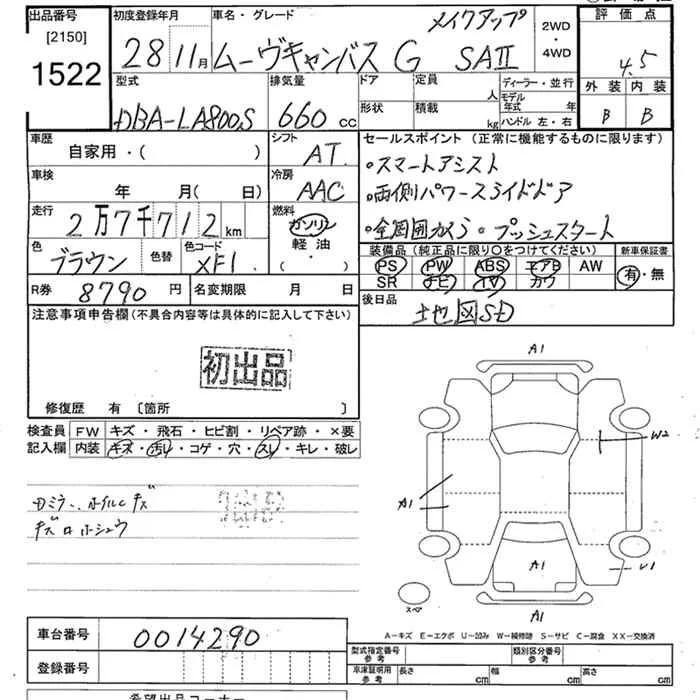 出品番号
[2150]
1522
初度登録年月
28 11月
車名・グレード
メイクアップ
ムーヴキャンバス G SAII
2WD
・
4WD
評価点
4.5
外装 内装
B B
型式
DBA-LA800S
排気量
660 cc
ドア
形状
定員
人
積載
kg
ディーラー・並行
モデル年式 年
ハンドル 左・右
車歴
自家用・( )
シフト
AT
車検
年 月( 日)
冷房
AAC
走行
2万7千712 km
燃料
ガソリン
軽油
( ・ )
色
ブラウン
色替
色コード
XF1.
R券 8790 円
名変期限 月 日
セールスポイント (正常に機能するものに限ります)
・スマートアシスト
・両側パワースライドドア
・全周囲カメラ・プッシュスタート
装備品(純正品に限り○をつけてください)
PS PW ABS エアB AW
SR ナビ TV カワ
新車保証書
有・無
後日品
地図SD
注意事項申告欄(不具合内容等は具体的に記入して下さい)
初出品
修復歴 有 〔箇所 〕
検査員 FW キズ・飛石・ヒビ割・リペア跡・×要
記入欄 内装 キズ・汚レ・コゲ・穴・スレ・キレ・破レ
ホイルキズ
キズ
ホシュウ
A1
W2
A1
A1
U1
A1
スペア
A-キズ E-エクボ U-凹凸 W-補修跡 S-サビ C-腐食 XX-交換済
車台番号 0014290
登録番号
型式指定番号
参考
類別区分番号
参考
車庫証明用
参考
長さ cm
幅 cm
高さ cm
希望出品コーナー